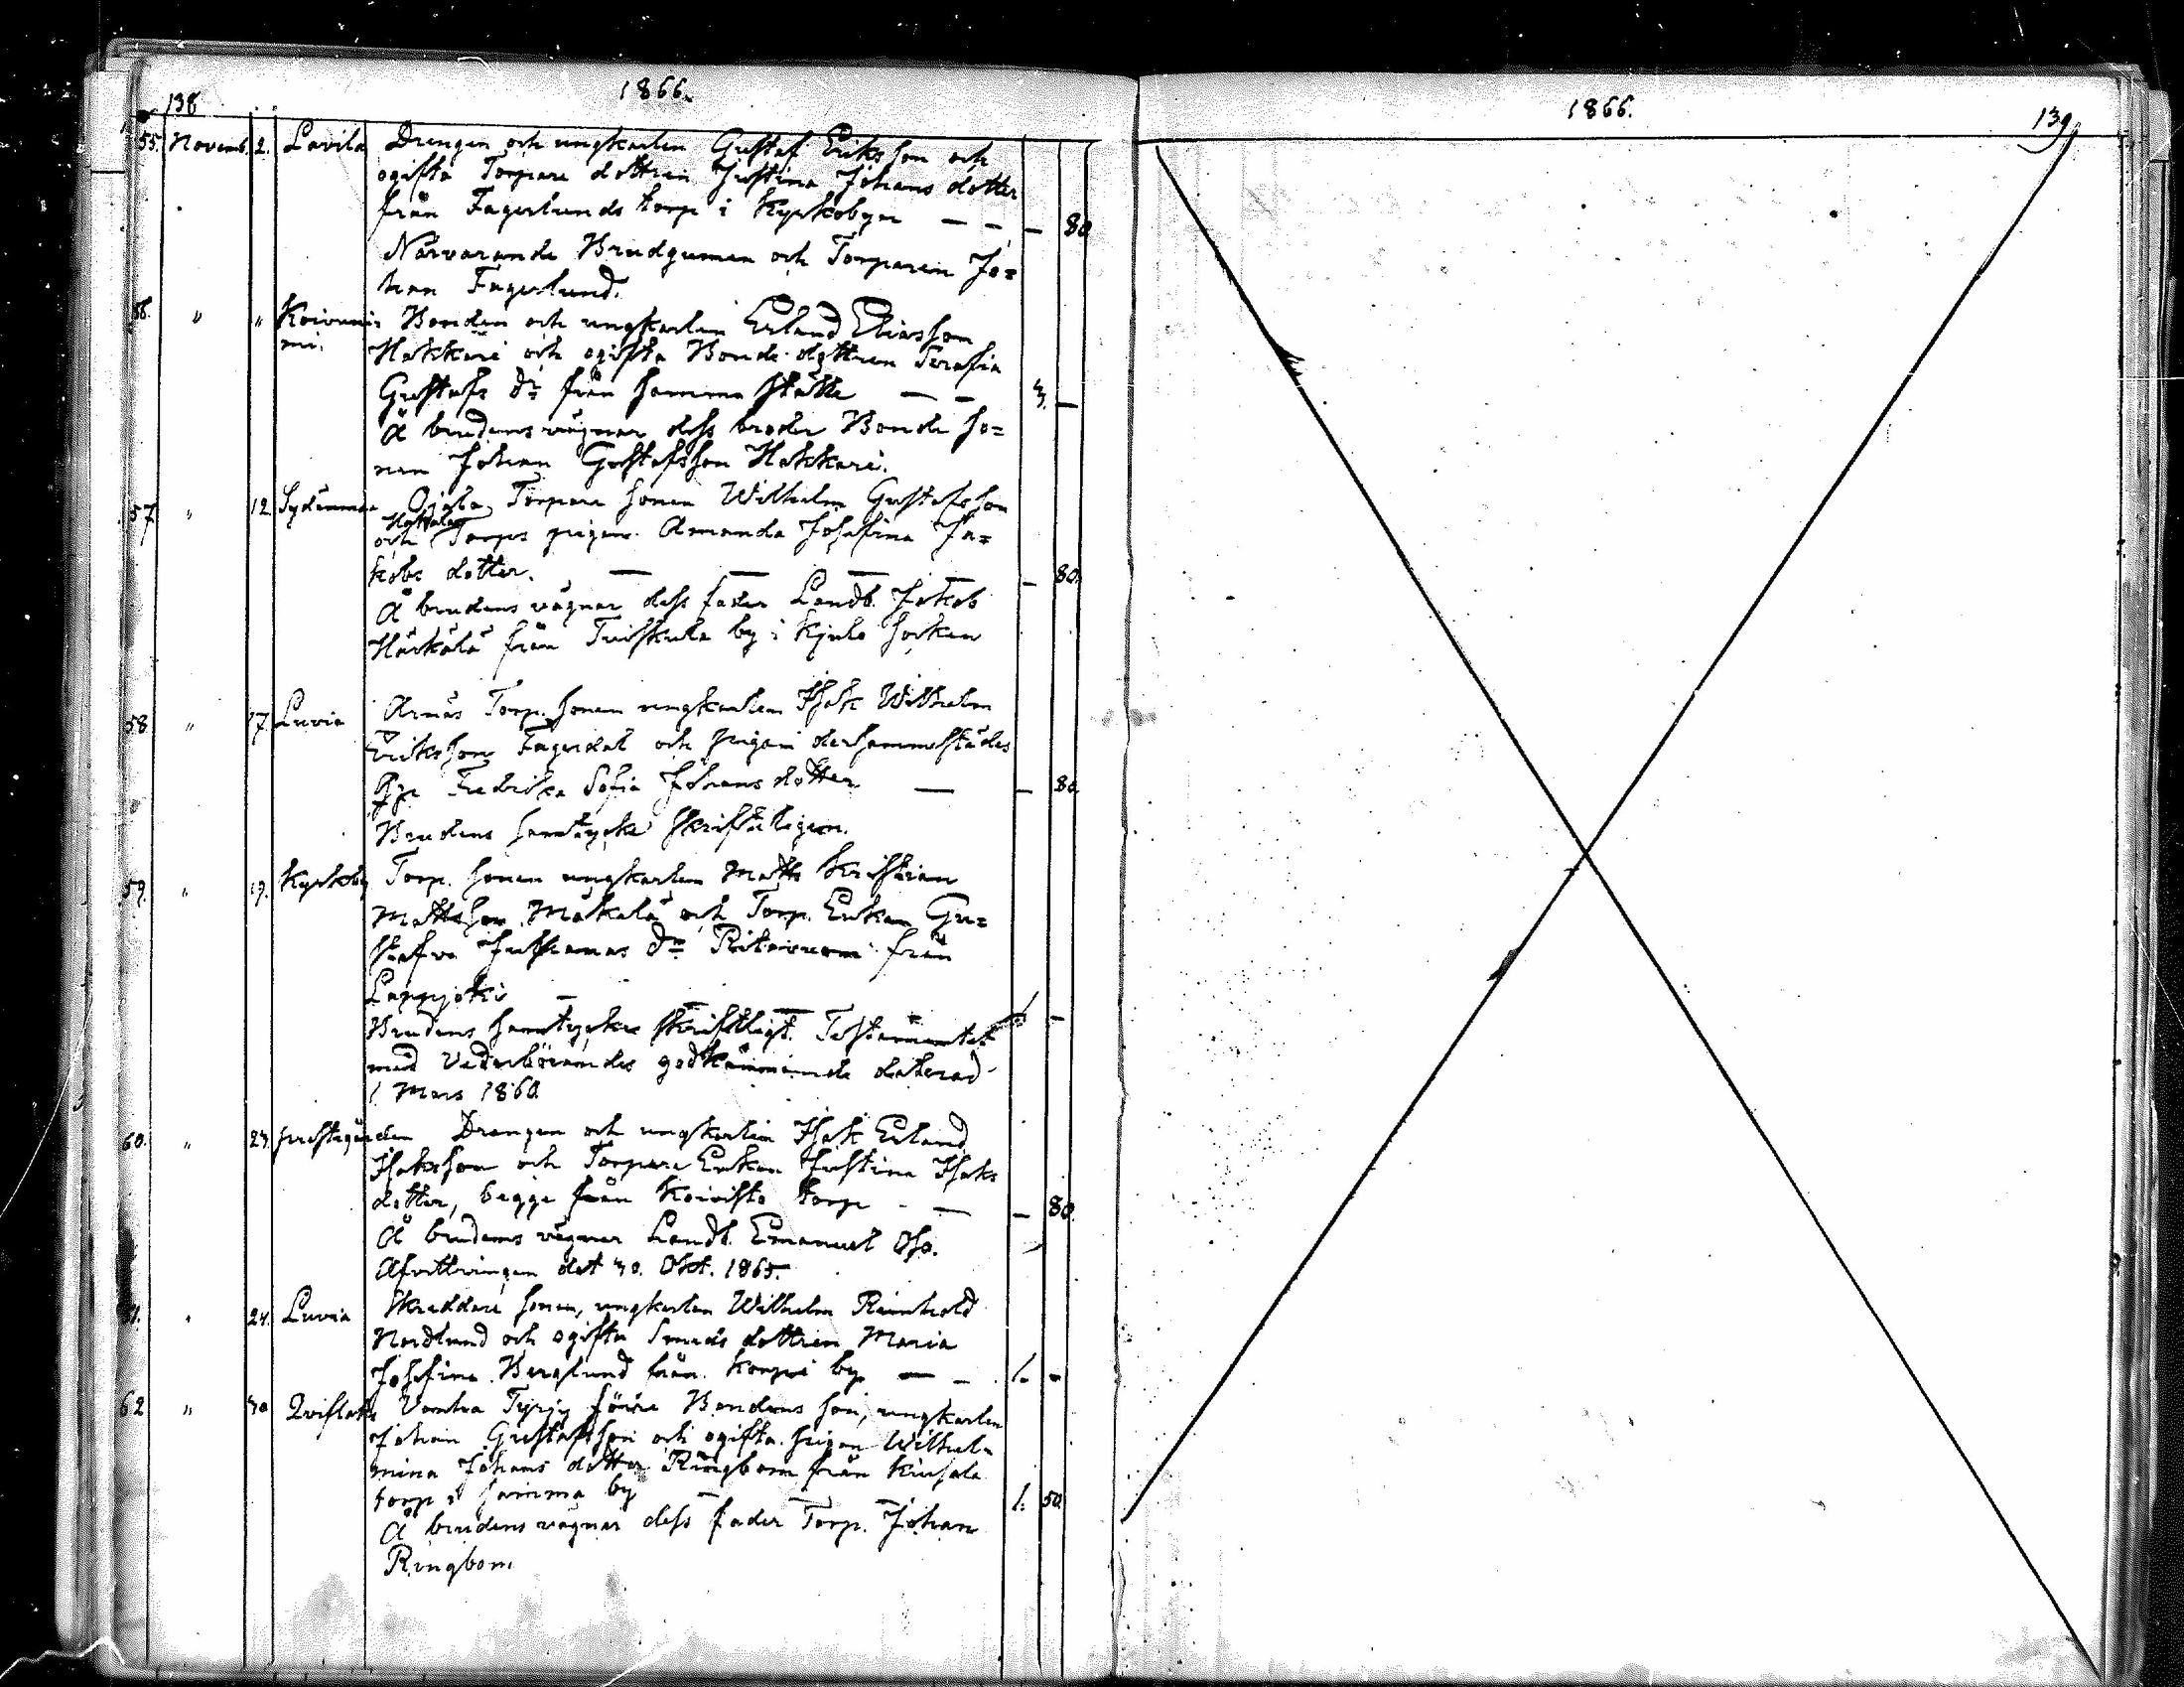 138
1866.
55. Novemb. 2. Lavila Drengen och ungkarlen Gustaf Eriksson och
ogifta Torpare dottren Justina Johans dotter
från Fagerlunds torp i Kyrkobyn — — — 80
Närvarande Brudgumen och Torparen Jo=
han Fagerlund.
56. " " Koivunie Bonden och ungkarlen Erland Eliasson
mi. Hakkari och ogifta Bonde dottren Serafia
Gustafs dr från samma ställe — — 3. —
Å brudens vägnar dess broder Bonde so=
nen Johan Gustafsson Hakkari.
57. " 12. Sydänmaa Ojala Torpare sonen Wilhelm Gustafsson
och Torps pigan Amanda Josefina Ja=
kobs dotter. — — — — — 80.
Å brudens vägnar dess fader Landb. Jakob
Härkälä från by i Kjulo socken
58. " 17. Luvia Arnäs Torp. sonen ungkarlen Isak Wilhelm
Eriksson Fagerdal och pigan dersammastädes
Fredrika Sofia Johans dotter — — 80.
Brudens samtycke skriftligen.
59. " 19. Kyrkoby Torp. sonen ungkarlen Matts Kristian
Mattsson Mäkelä och Torp. Enkan Gu=
stafva Justianas dr från
Lappjoki — — — 1 —
Brudens samtycke skriftligt. Testamentet
med Vederbörandes godkännande daterad
1 Mars 1860.
60. " 23. prestgården Drengen och ungkarlen Isak Erland
Isaksson och Torpare Enkan Justina Isaks
dotter, begge från Koivisto torp - — — 80.
Å brudens vägnar Landb. Emanuel
Afvittringen det 30. Okt. 1865.
61. " 24. Luvia Skreddare sonen, ungkarlen Wilhelm Reinhold
Nordlund och ogifta Smeds dottren Maria
Josefina Berglund från Korpi by — — 1. -
62 " 30 Qviflaks Vanha Tyrjy förre Bondens son, ungkarlen
Johan Gustafsson och ogifta pigan Wilhel=
mina Johans dotter Ringbom från
torp i samma by — — — 1. 50.
Å brudens vägnar dess fader Torp. Johan
Ringbom.
1866.
139